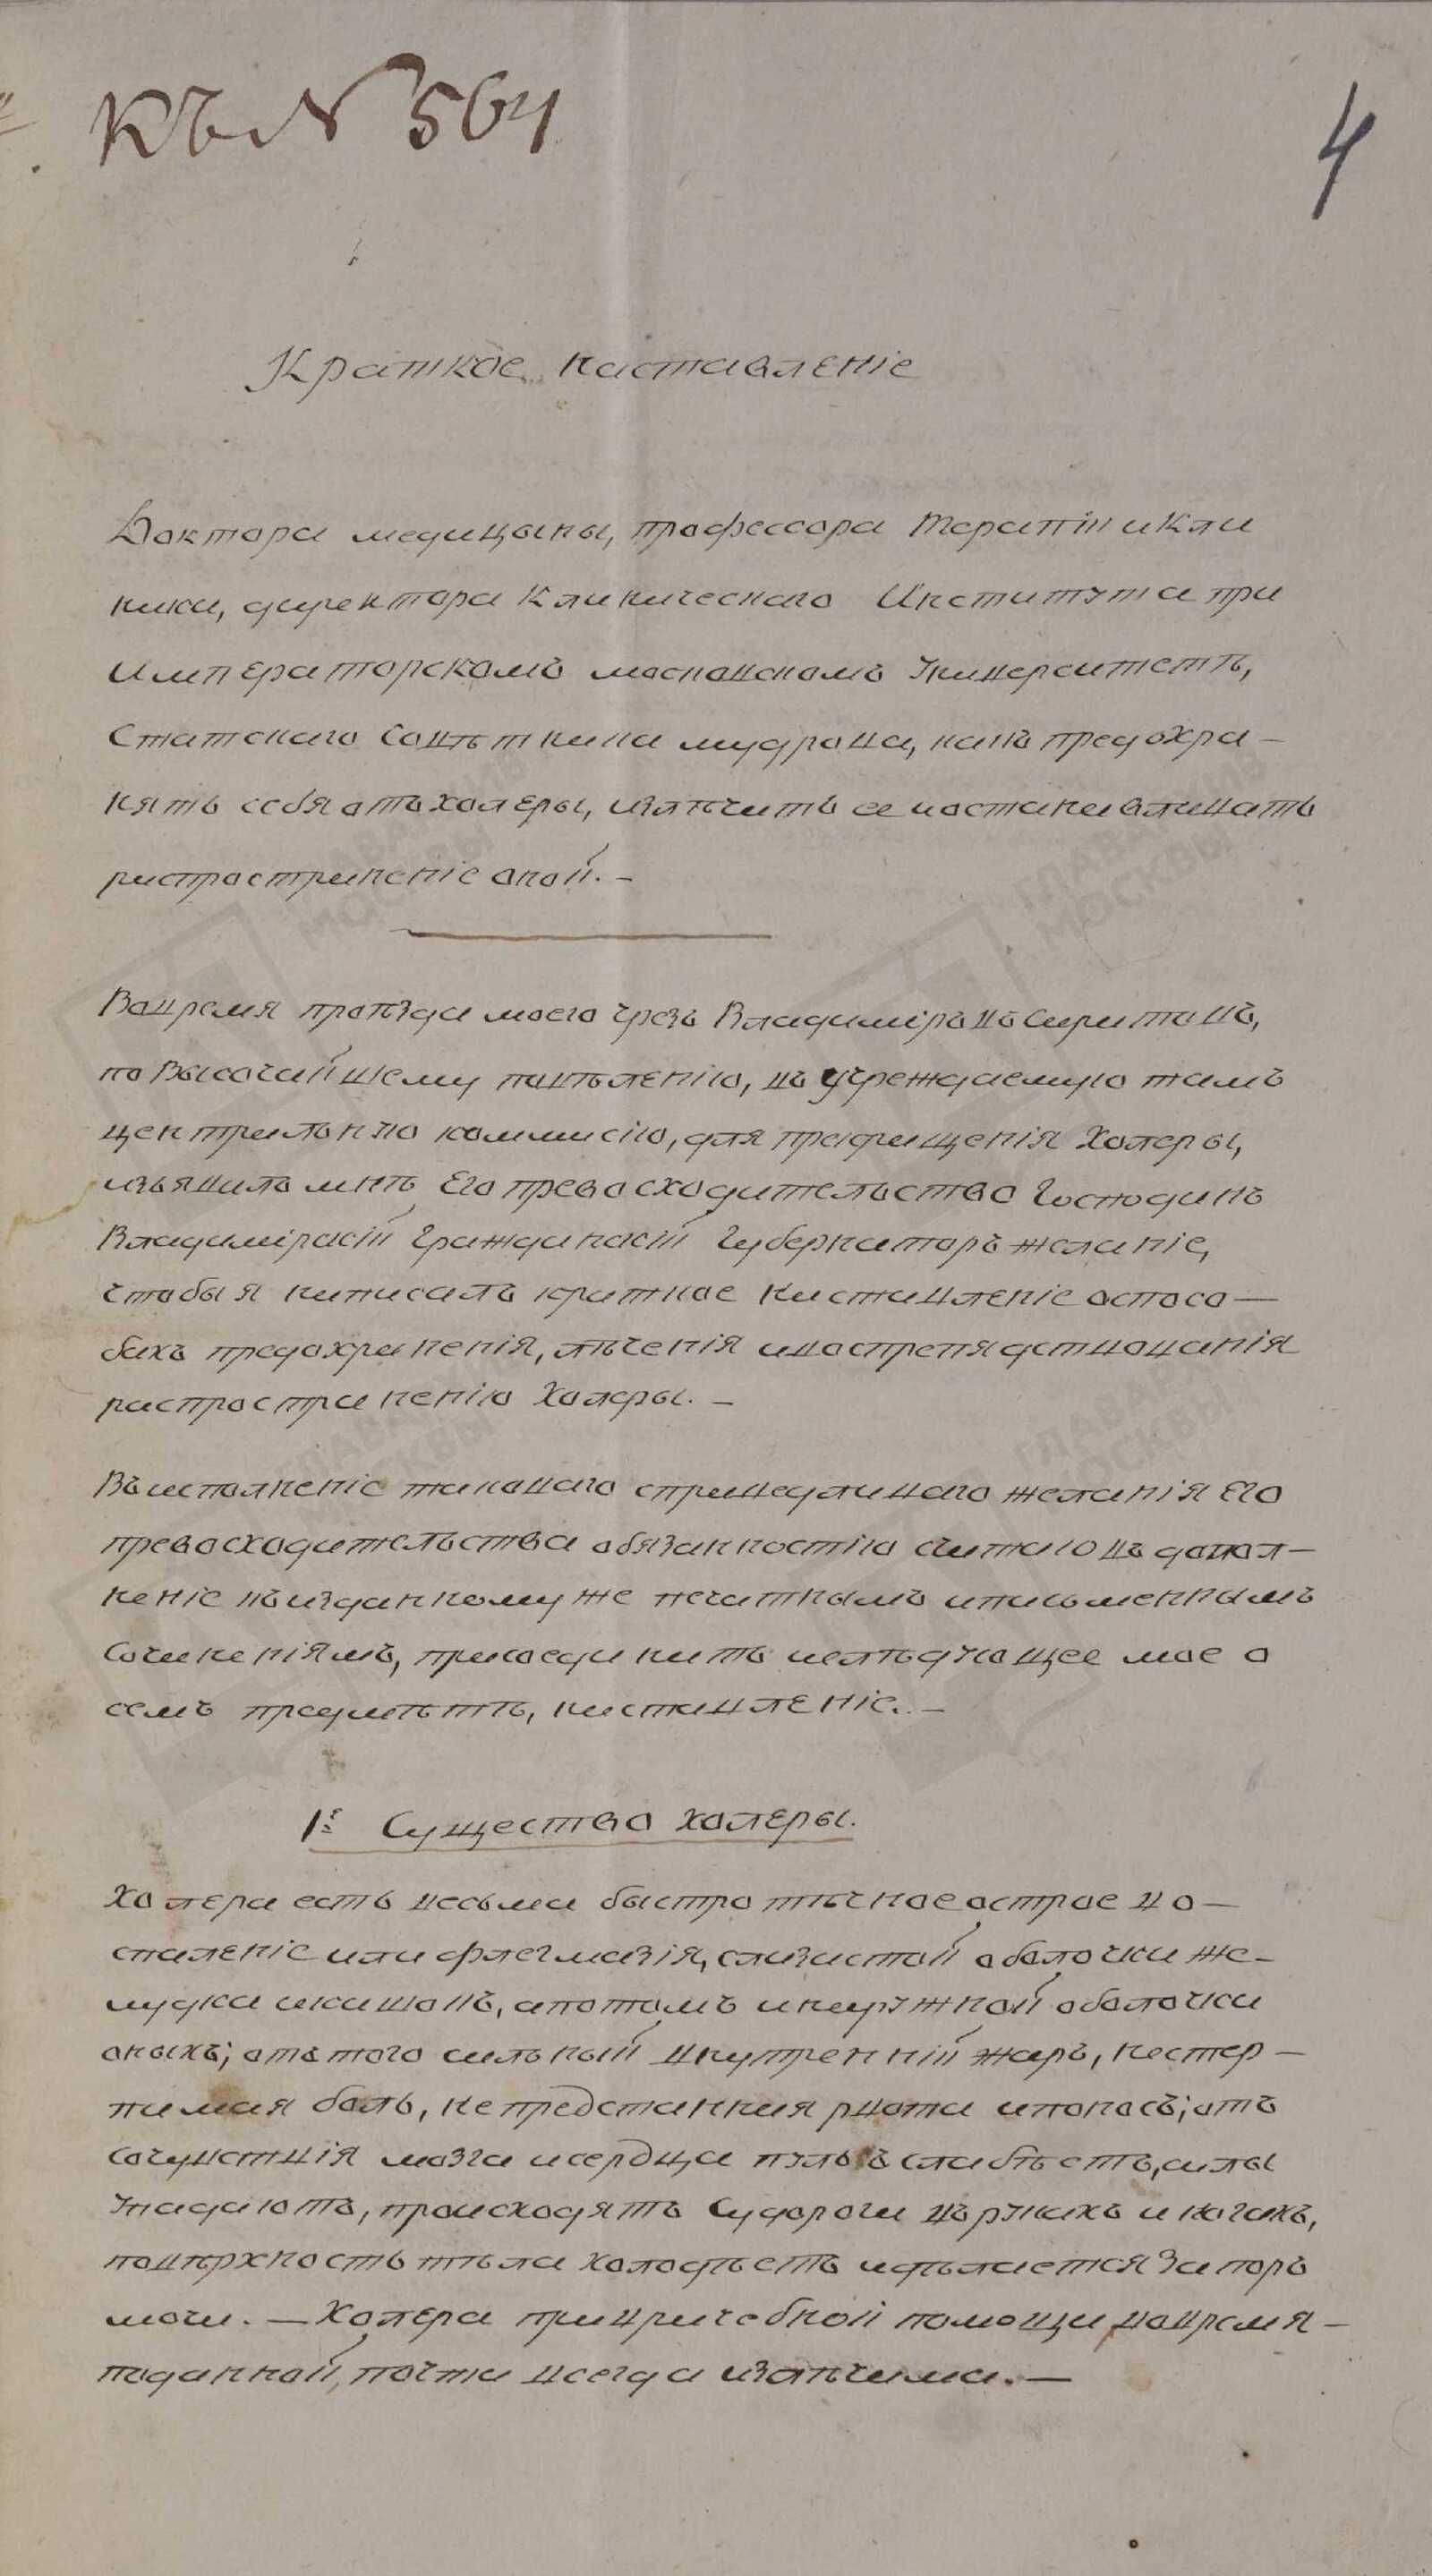 Къ № 564
4
Краткое наставленіе
Доктора медицыны, профессора Терапіи и Кли
ники, директора Клиническаго Института при
Императорскомъ московскомъ Университетѣ,
Статскаго Совѣтника мудрова, какъ предохра–
нять себя отъ холеры, излѣчить ее и останавливать
распространеніе оной.–
Вовремя проѣзда моего чрезъ Владиміръ въ Саратовъ,
по Высочайшему повѣленію, въ учреждаемую тамъ
центральную коммисію, для прекращенія Холеры,
изъявилъ мнѣ Его превосходительство Господинъ
Владимірскій Гражданскій Губернаторъ желаніе,
чтобы я написалъ краткое наставленіе о спосо–
бахъ предохраненія, лѣченія и воспрепядствованія
распространенію Холеры.–
Въ исполненіе таковаго справедливаго желанія Его
превосходительства обязанностію считаю въ допол–
неніе къ изданному же печатнымъ и письменнымъ
Сочиненіямъ, присоединить и слѣдующее мое о
семъ предмѣтѣ, наставленіе.–
1е Существо холеры.
Холера есть весьма быстротѣчное острое во–
спаленіе или флегмазія, слизистой оболочки же–
лудка и кишокъ, а потомъ и наружной оболочки
оныхъ; отъ того сильный внутренній жаръ, нестер–
пимая боль, непредстанная рвота и поносъ; отъ
сочувствія мозга и сердца пульсъ слабѣетъ, силы
упадаютъ, происходятъ Судороги въ рукахъ и ногахъ,
повѣрхность тѣла холодѣетъ и дѣлается запоръ
мочи. – Холера при врачебной помощи, вовремя–
поданной, почти всегда излѣчима.–